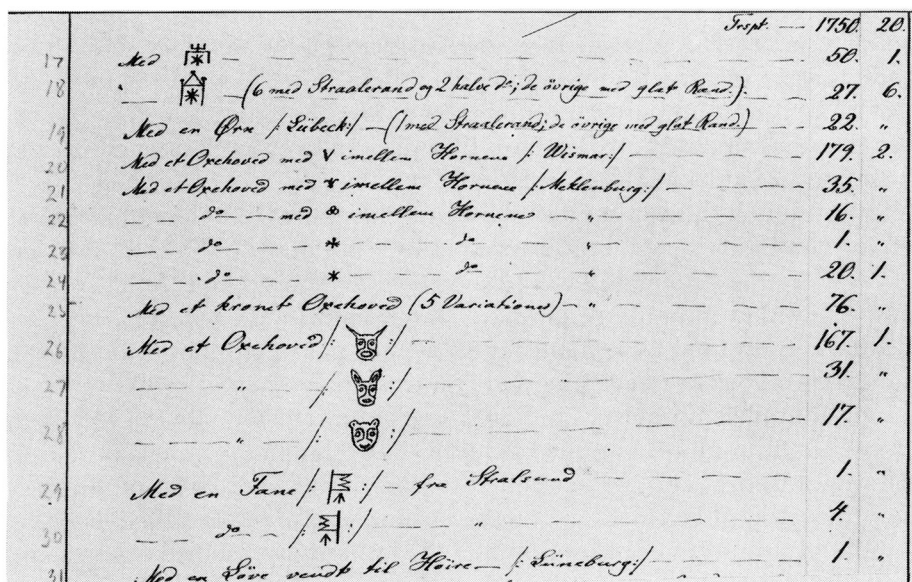 Trspt. — 1750. 20.
17 Med — 50. 1.
18 — (6 med Straalerand og 2 halve do; de övrige med glat Rand.) 27. 6.
19 Med en Ørn /: Lübeck :/ — (1 med Straalerand; de övrige med glat Rand.) 22. "
20 Med et Oxehoved med V imellem Hornene /: Wismar :/ — 179. 2.
21 Med et Oxehoved med imellem Hornene /: Meklenburg :/ — 35. "
22 — do — med imellem Hornene — " — 16. "
23 — do — * — do — " — 1. "
24 — do — * — do — " — 20. 1.
25 Med et kronet Oxehoved (5 Variationer) — " — 76. "
26 Med et Oxehoved /: :/ — 167. 1.
27 — " — /: :/ — 31. "
28 — " — /: :/ — 17. "
29 Med en Fane /: :/ — fra Stralsund — 1. "
30 — do — /: :/ — " — 4. "
31 Med en Löve vendt til Höire — /: Lüneburg :/ — 1. "